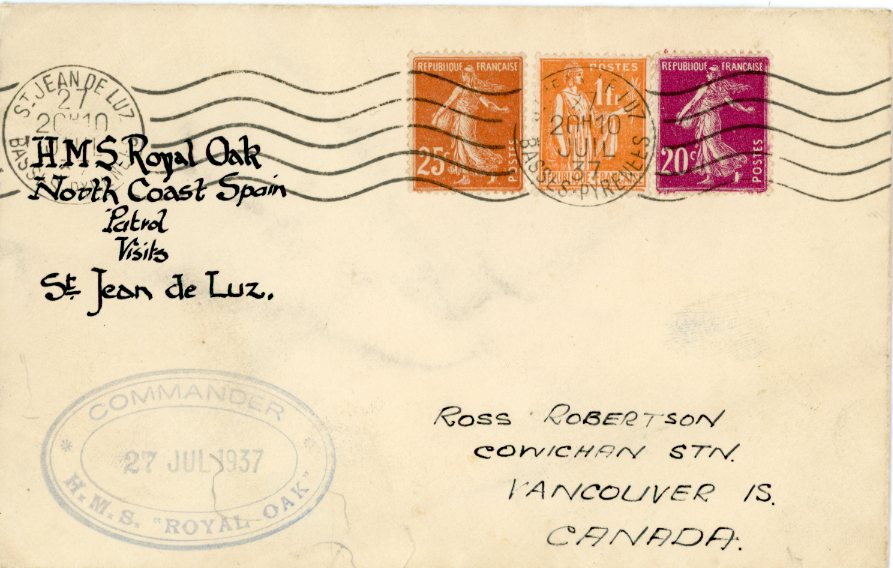 ST JEAN DE LUZ
27
20H10
BASSES-PYRENEES
H.M.S. Royal Oak
North Coast Spain
Patrol
Visits
St. Jean de Luz.
REPUBLIQUE FRANÇAISE
25c
POSTES
POSTES
1fr
DE LUZ
20H10
JUIL
37
BASSES-PYRENEES
REPUBLIQUE FRANÇAISE
20c
POSTES
COMMANDER
27 JUL 1937
H.M.S. "ROYAL OAK"
ROSS ROBERTSON
COWICHAN STN.
VANCOUVER IS.
CANADA.